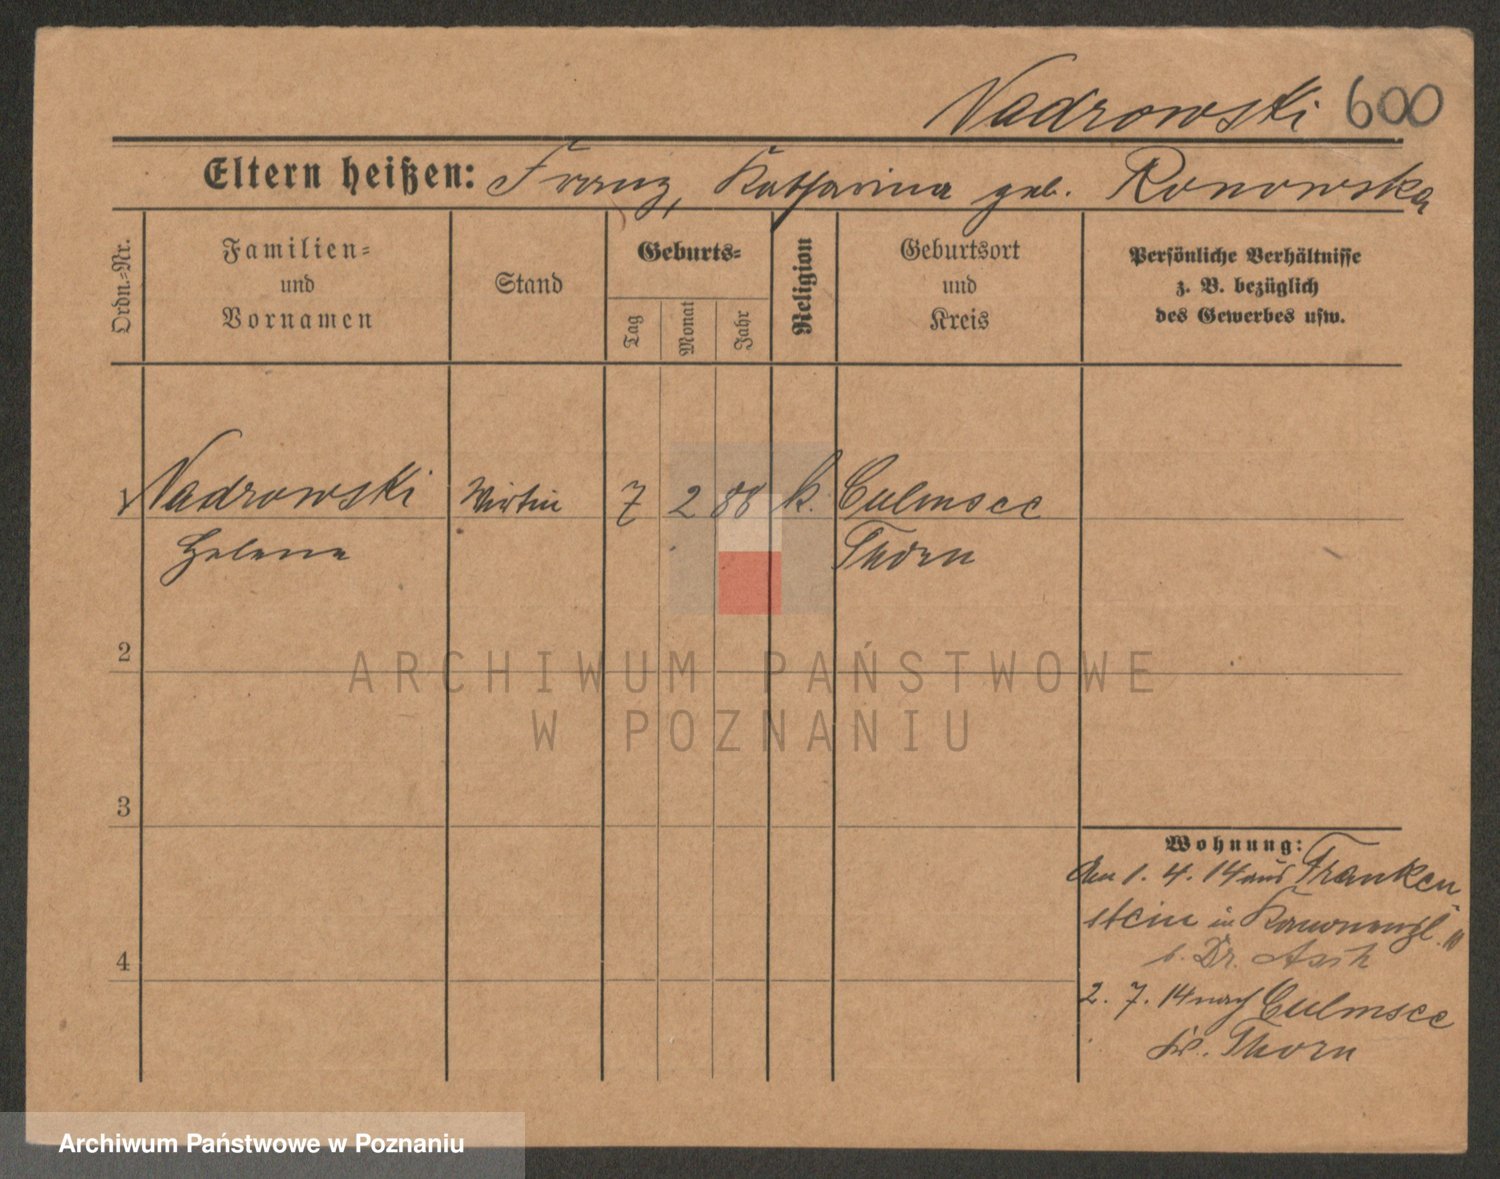 Nadrowski 600
Eltern heißen: Franz, Katharina geb. Ronowska
Ordn.-Nr.
Familien-
und
Vornamen
Stand
Geburts-
Tag
Monat
Jahr
Religion
Geburtsort
und
Kreis
Persönliche Verhältnisse
z. B. bezüglich
des Gewerbes usw.
1 Nadrowski Wirtin 7 2 88 k. Culmsee
Helene Thorn
2
3
4
Wohnung:
Am 1. 4. 14 aus Franken-
stein in
b. Dr.
2. 7. 14 nach Culmsee
Kr. Thorn
ARCHIWUM PAŃSTWOWE
W POZNANIU
Archiwum Państwowe w Poznaniu